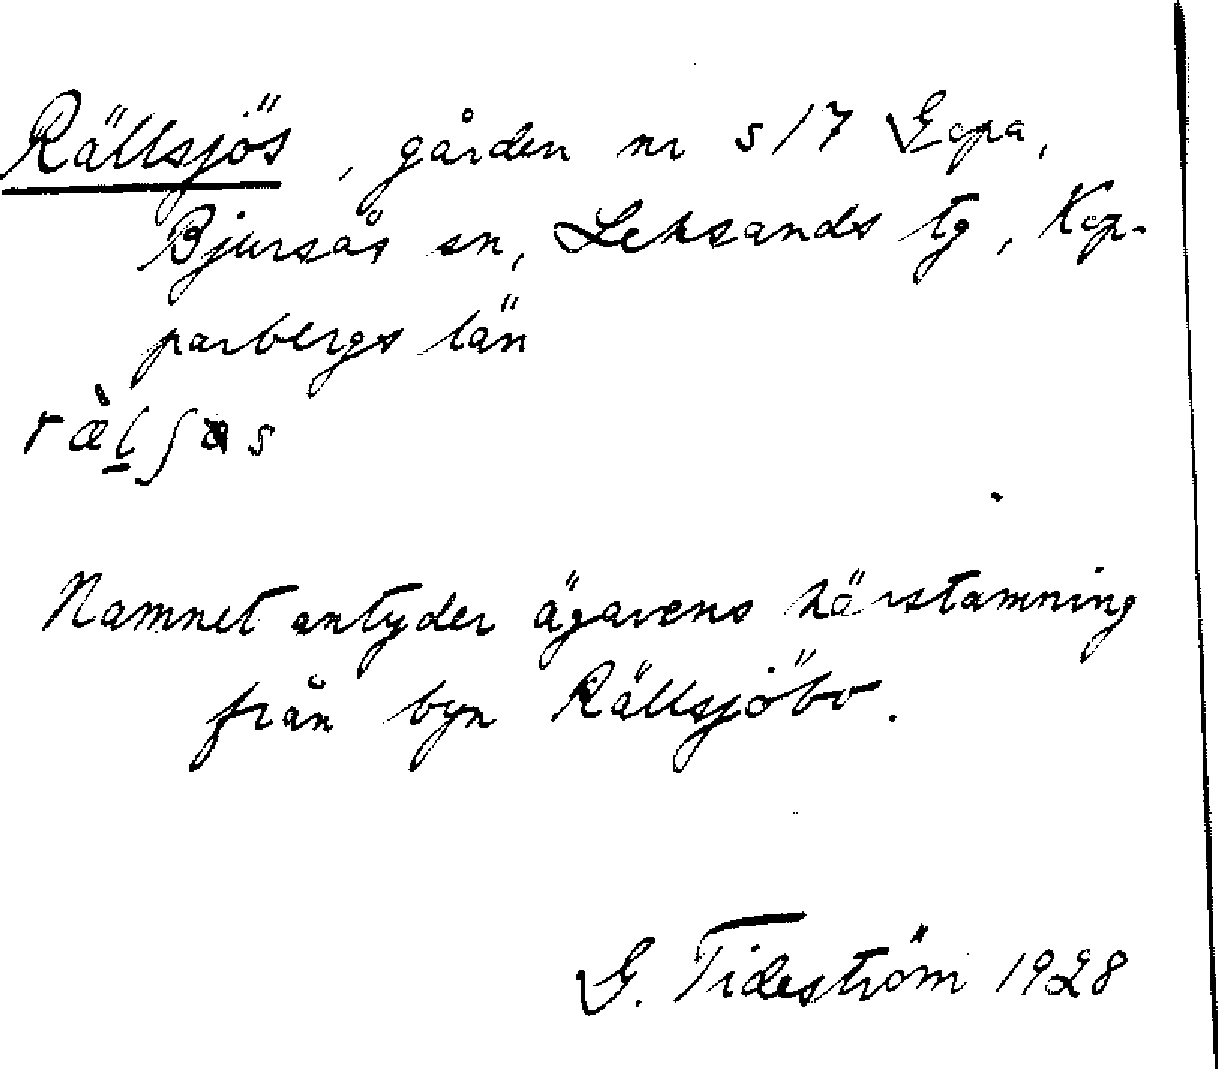 Rällsjös, gården nr 5 17 Gopa,
Bjursås sn, Leksands tg, Kop-
parbergs län
Namnet antyder ägarens härstamning
från byn Rällsjöbo.
G. Tideström 1928